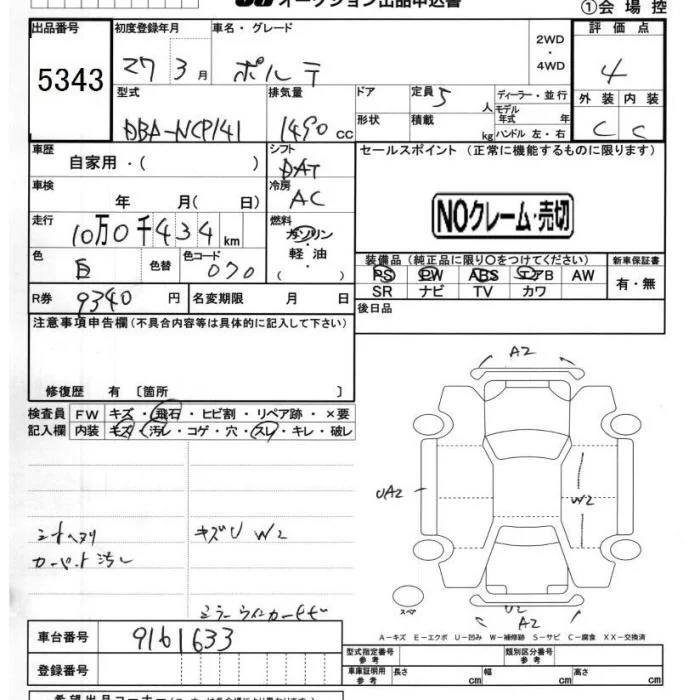 オークション出品申込書
①会場控
出品番号 5343
初度登録年月 27 3月
車名・グレード ポルテ
2WD・4WD
評価点 4
外装 C 内装 C
型式 DBA-NCP141
排気量 1490 CC
ドア
形状
定員 5 人
積載 kg
ディーラー・並行
モデル年式 年
ハンドル 左・右
車歴 自家用・( )
シフト DAT
セールスポイント (正常に機能するものに限ります)
NOクレーム・売切
車検 年 月( 日)
冷房 AC
走行 10万0千434km
燃料 ガソリン
軽油
( )
色 白 色替
色コード 070
装備品 (純正品に限り○をつけてください)
PS PW ABS エアB AW
SR ナビ TV カワ
新車保証書
有・無
R券 9340 円
名変期限 月 日
後日品
注意事項申告欄(不具合内容等は具体的に記入して下さい)
修復歴 有 〔箇所 〕
検査員 FW キズ・飛石・ヒビ割・リペア跡・×要
記入欄 内装 キズ・汚レ・コゲ・穴・スレ・キレ・破レ
A2
UA2
W2
シートヘタリ
カーペット汚レ
キズU W2
スペア
U2
A2
A-キズ E-エクボ U-凹み W-補修跡 S-サビ C-腐食 XX-交換済
車台番号 9161633
登録番号
型式指定番号 参考
類別区分番号 参考
車庫証明用 参考 長さ cm 幅 cm 高さ cm
希望出品コーナー